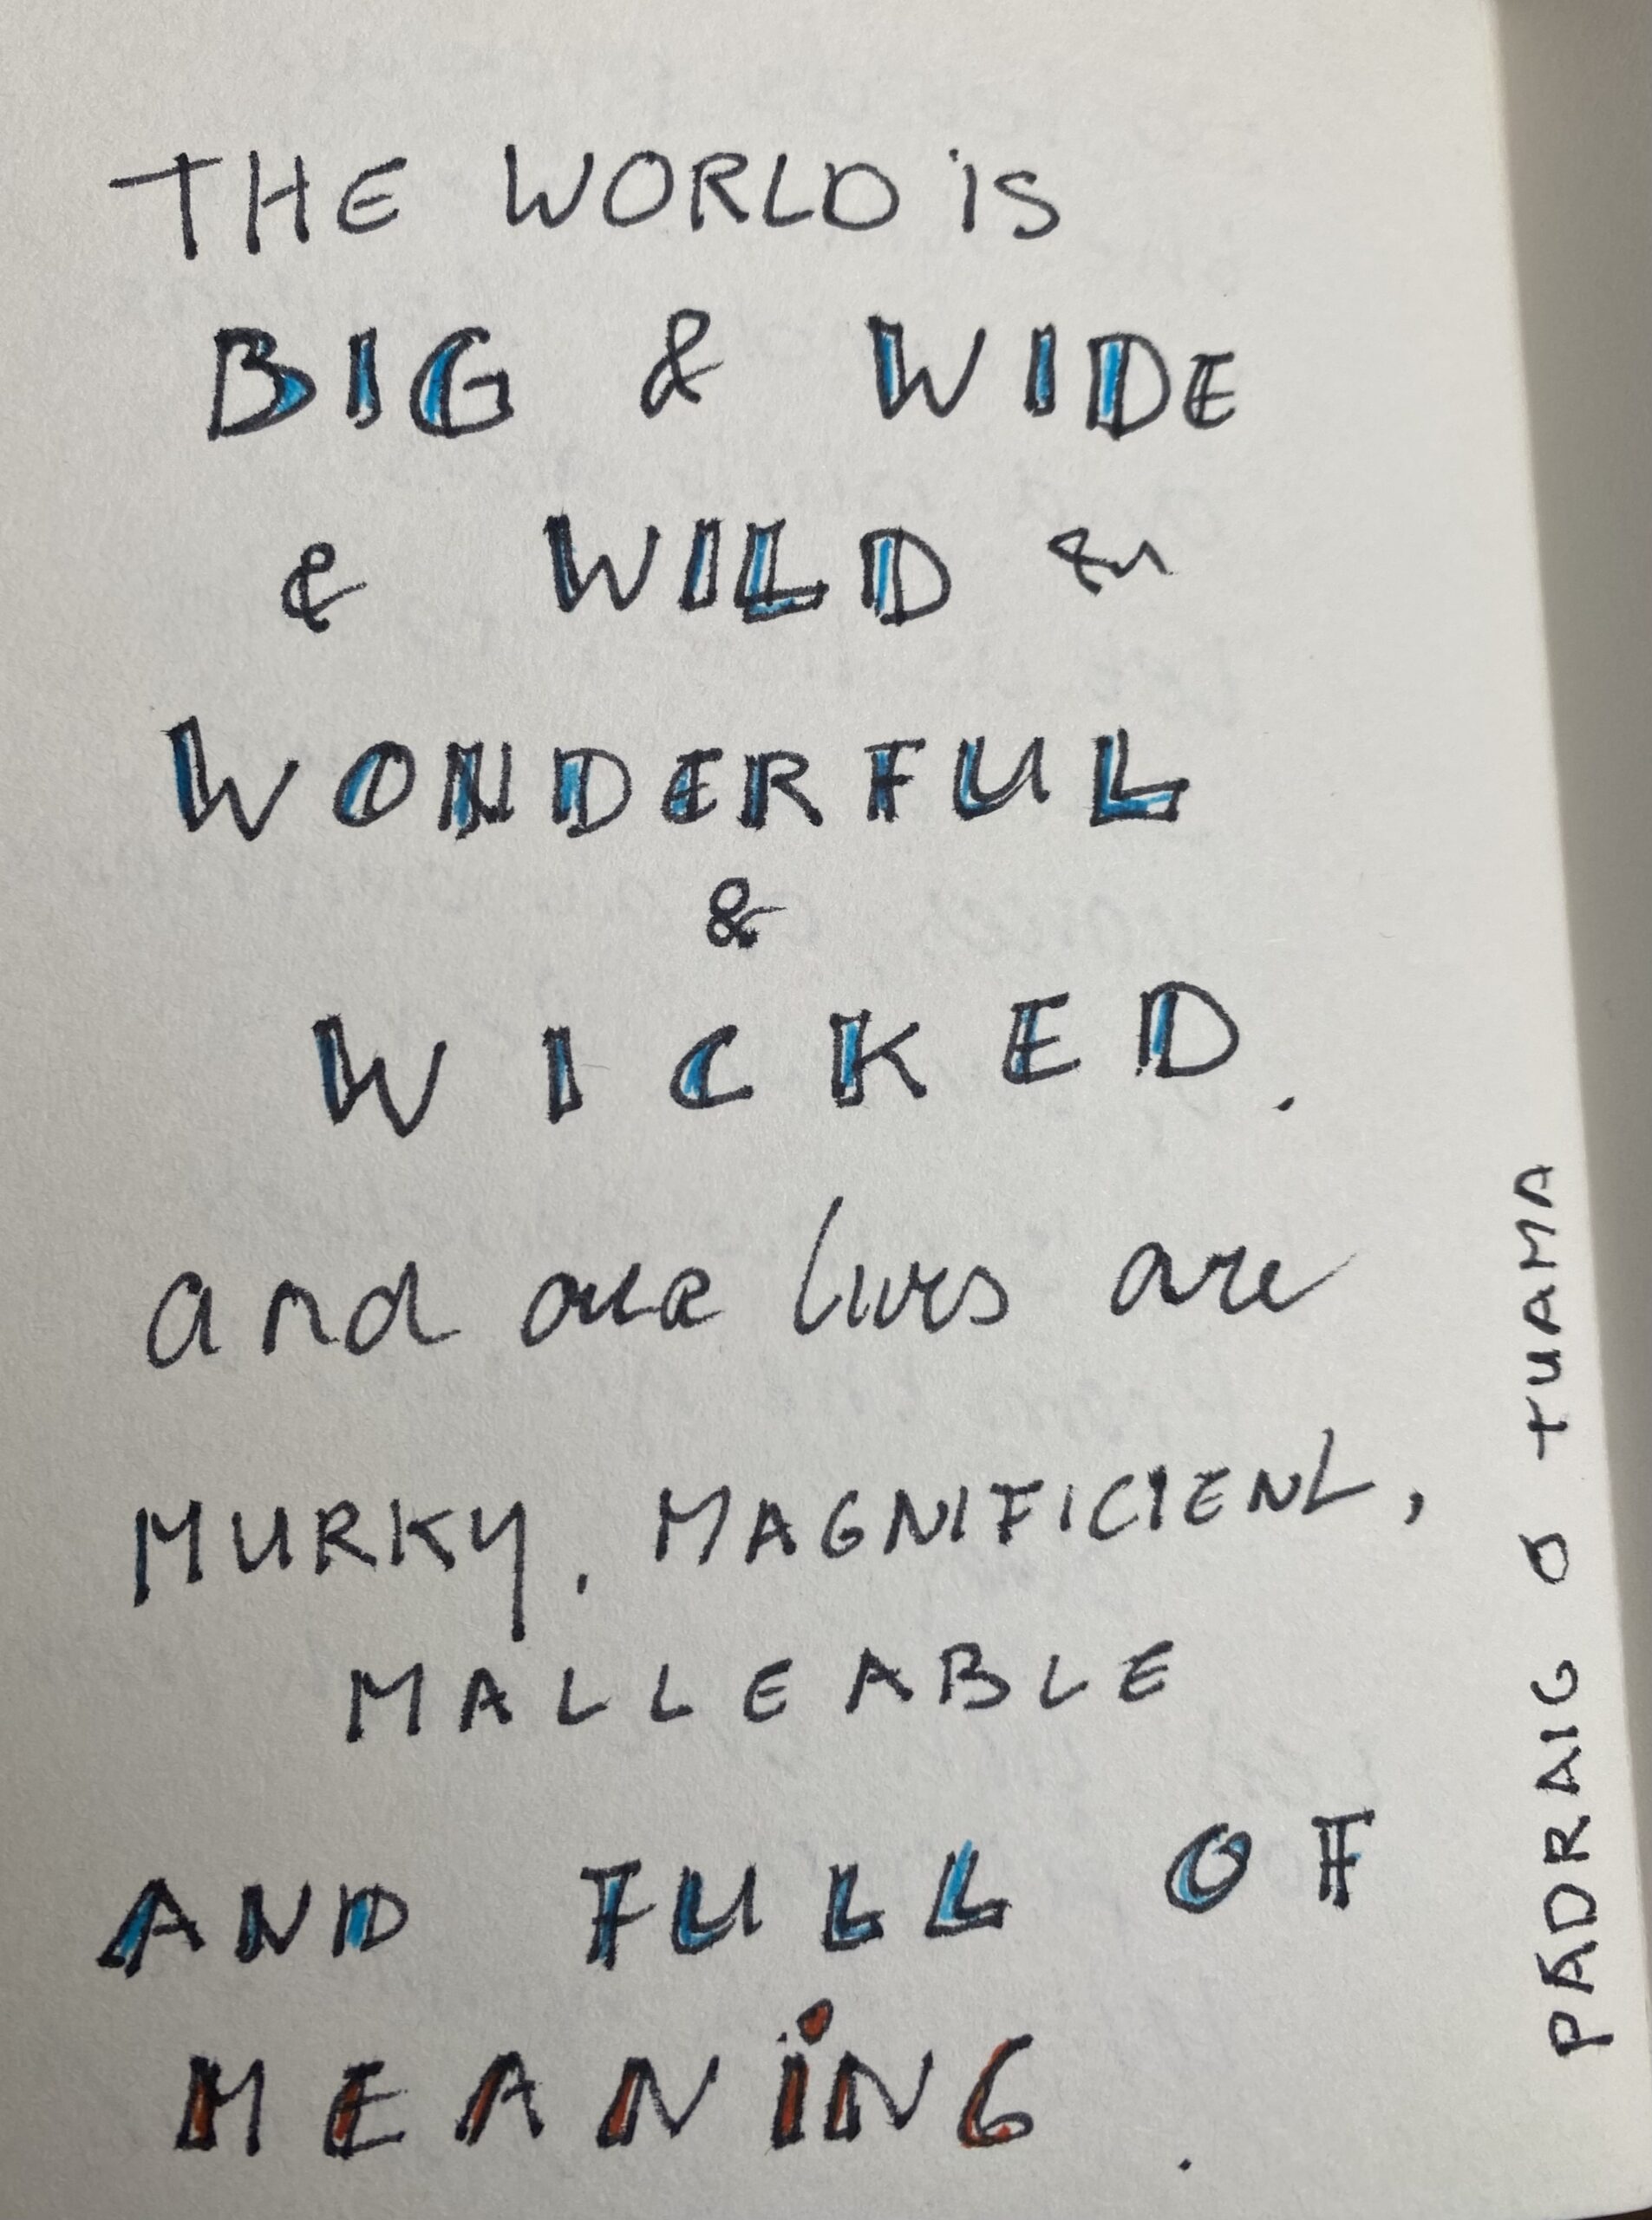 THE WORLD iS
BIG & WIDE
& WILD &
WONDERFUL
&
WICKED.
and our lives are
MURKY, MAGNIFICIENT,
MALLEABLE
AND FULL OF
MEANiNG.
PÁDRAIG Ó TUAMA